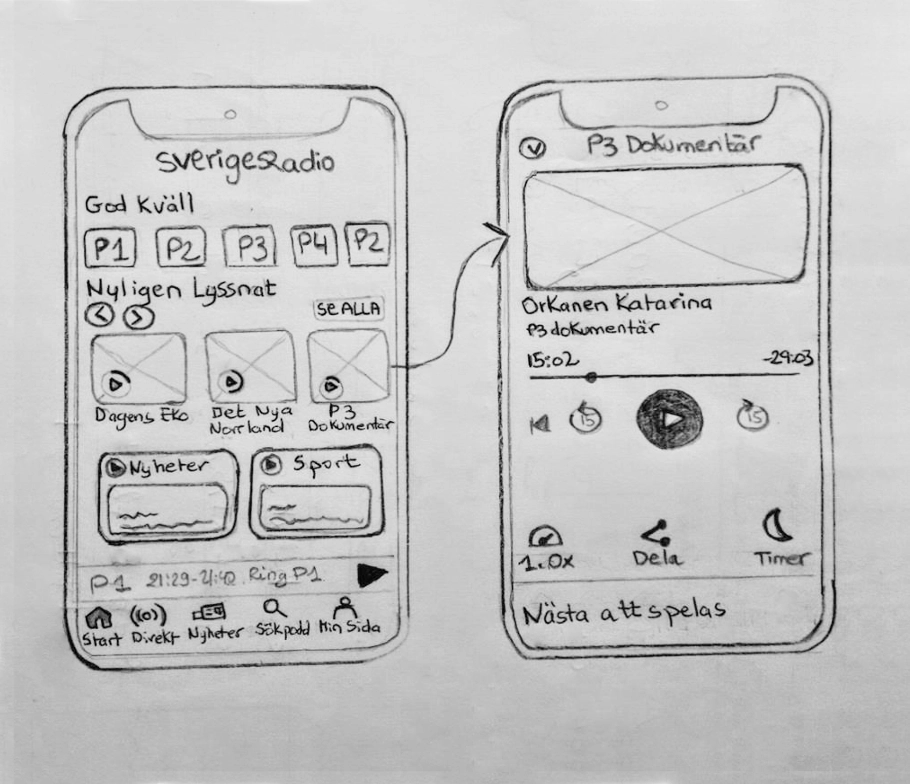 SverigesRadio
God Kväll
P1 P2 P3 P4 P2
Nyligen Lyssnat
SE ALLA
Dagens Eko
Det Nya
Norrland
P3
Dokumentär
Nyheter
Sport
P1 21:29-21:42 Ring P1
Start Direkt Nyheter Sökpodd Min Sida
P3 Dokumentär
Orkanen Katarina
P3 dokumentär
15:02 -29:03
15 15
1.0x Dela Timer
Nästa att spelas